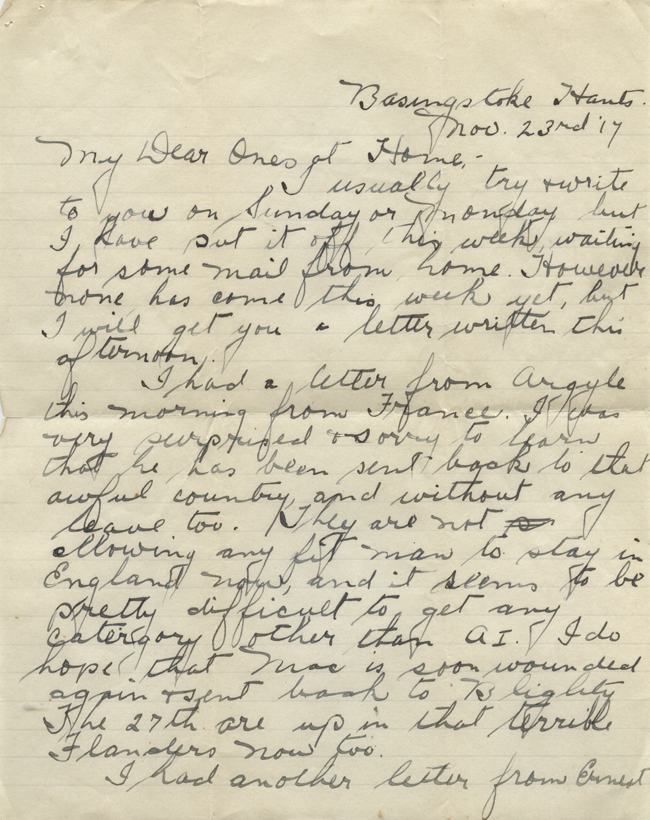 Basingstoke Hants.
Nov. 23rd '17
My Dear Ones at Home,-
I usually try & write
to you on Sunday or Monday but
I have put it off this week, waiting
for some mail from home. However
none has come this week yet, but
I will get you a letter written this
afternoon.
I had a letter from Argyle
this morning from France. I was
very surprised & sorry to learn
that he has been sent back to that
awful country, and without any
leave too. They are not
allowing any fit man to stay in
England now, and it seems to be
pretty difficult to get any
catergory other than A1. I do
hope that Mac is soon wounded
again & sent back to Blighty
The 27th are up in that terrible
Flanders now too.
I had another letter from Ernest